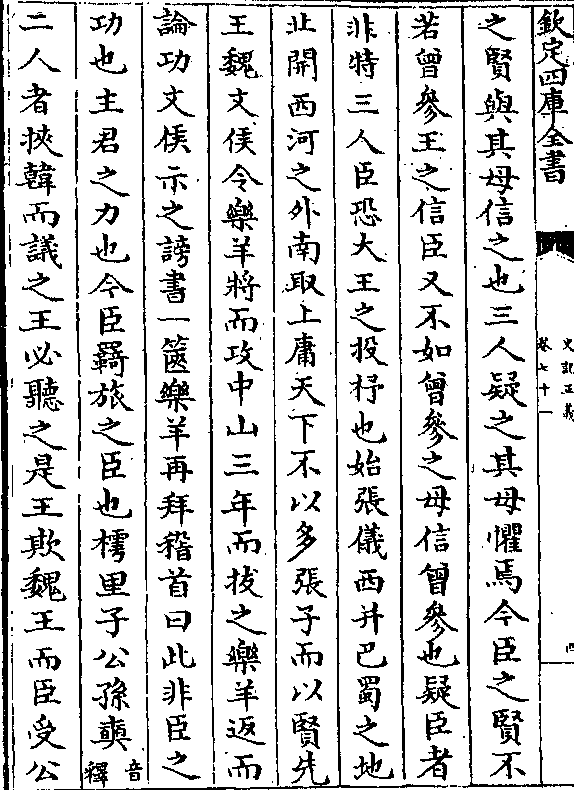 欽定四庫全書
史記正義
卷七十一
四
之賢與其母信之也三人疑之其母懼焉今臣之賢不
若曾參王之信臣又不如曾參之母信曾參也疑臣者
非特三人臣恐大王之投杼也始張儀西并巴蜀之地
北開西河之外南取上庸天下不以多張子而以賢先
王魏文侯令樂羊將而攻中山三年而拔之樂羊返而
論功文侯示之謗書一篋樂羊再拜稽首曰此非臣之
功也主君之力也今臣羇旅之臣也樗里子公孫奭音釋
二人者挾韓而議之王必聽之是王欺魏王而臣受公